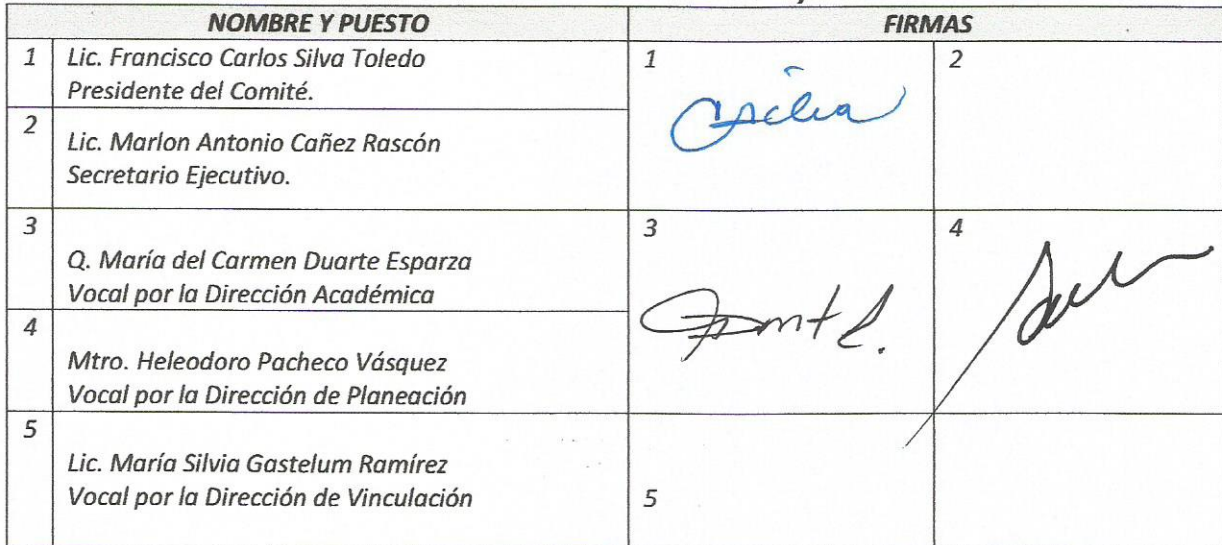 NOMBRE Y PUESTO
FIRMAS
1
Lic. Francisco Carlos Silva Toledo
Presidente del Comité.
2
Lic. Marlon Antonio Cañez Rascón
Secretario Ejecutivo.
3
Q. María del Carmen Duarte Esparza
Vocal por la Dirección Académica
4
Mtro. Heleodoro Pacheco Vásquez
Vocal por la Dirección de Planeación
5
Lic. María Silvia Gastelum Ramírez
Vocal por la Dirección de Vinculación
1
2
3
4
5